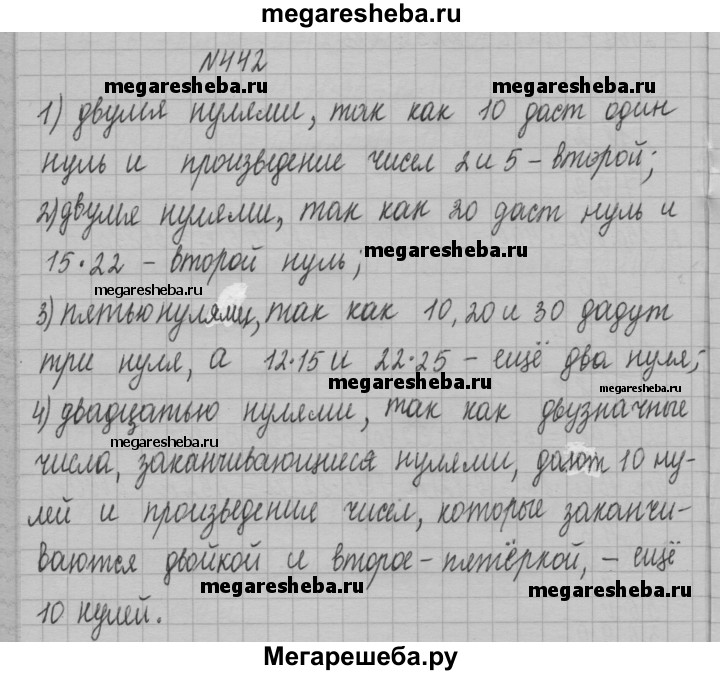 megaresheba.ru
N442
megaresheba.ru megaresheba.ru
1) двумя нулями, так как 10 даст один
нуль и произведение чисел 2 и 5 – второй;
2) двумя нулями, так как 20 даст нуль и
15·22 – второй нуль;
megaresheba.ru
megaresheba.ru
3) пятью нулями, так как 10, 20 и 30 дадут
три нуля, а 12·15 и 22·25 – ещё два нуля;
megaresheba.ru megaresheba.ru
4) двадцатью нулями, так как двузначные
megaresheba.ru
числа, заканчивающиеся нулями, дают 10 ну-
лей и произведение чисел, которые заканчи-
ваются двойкой и второе – пятёркой, – ещё
megaresheba.ru megaresheba.ru
10 нулей.
Мегарешеба.ру